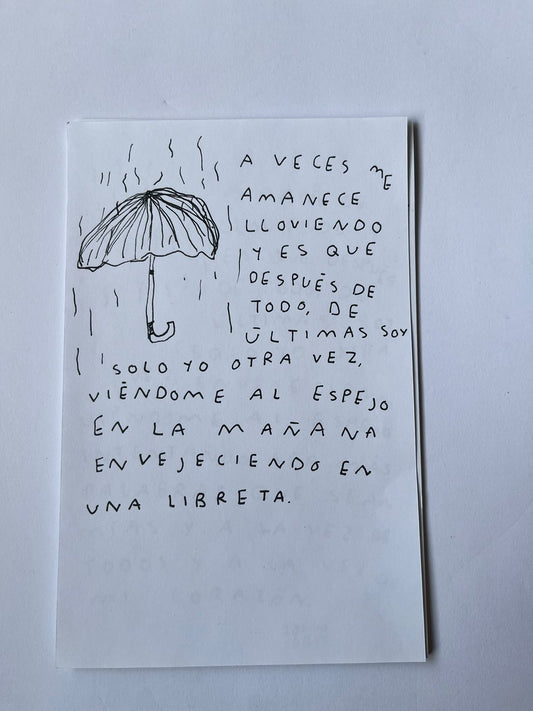 A VECES ME
AMANECE
LLOVIENDO
Y ES QUE
DESPUÉS DE
TODO, DE
ÚLTIMAS SOY
SOLO YO OTRA VEZ,
VIÉNDOME AL ESPEJO
EN LA MAÑANA
ENVEJECIENDO EN
UNA LIBRETA.